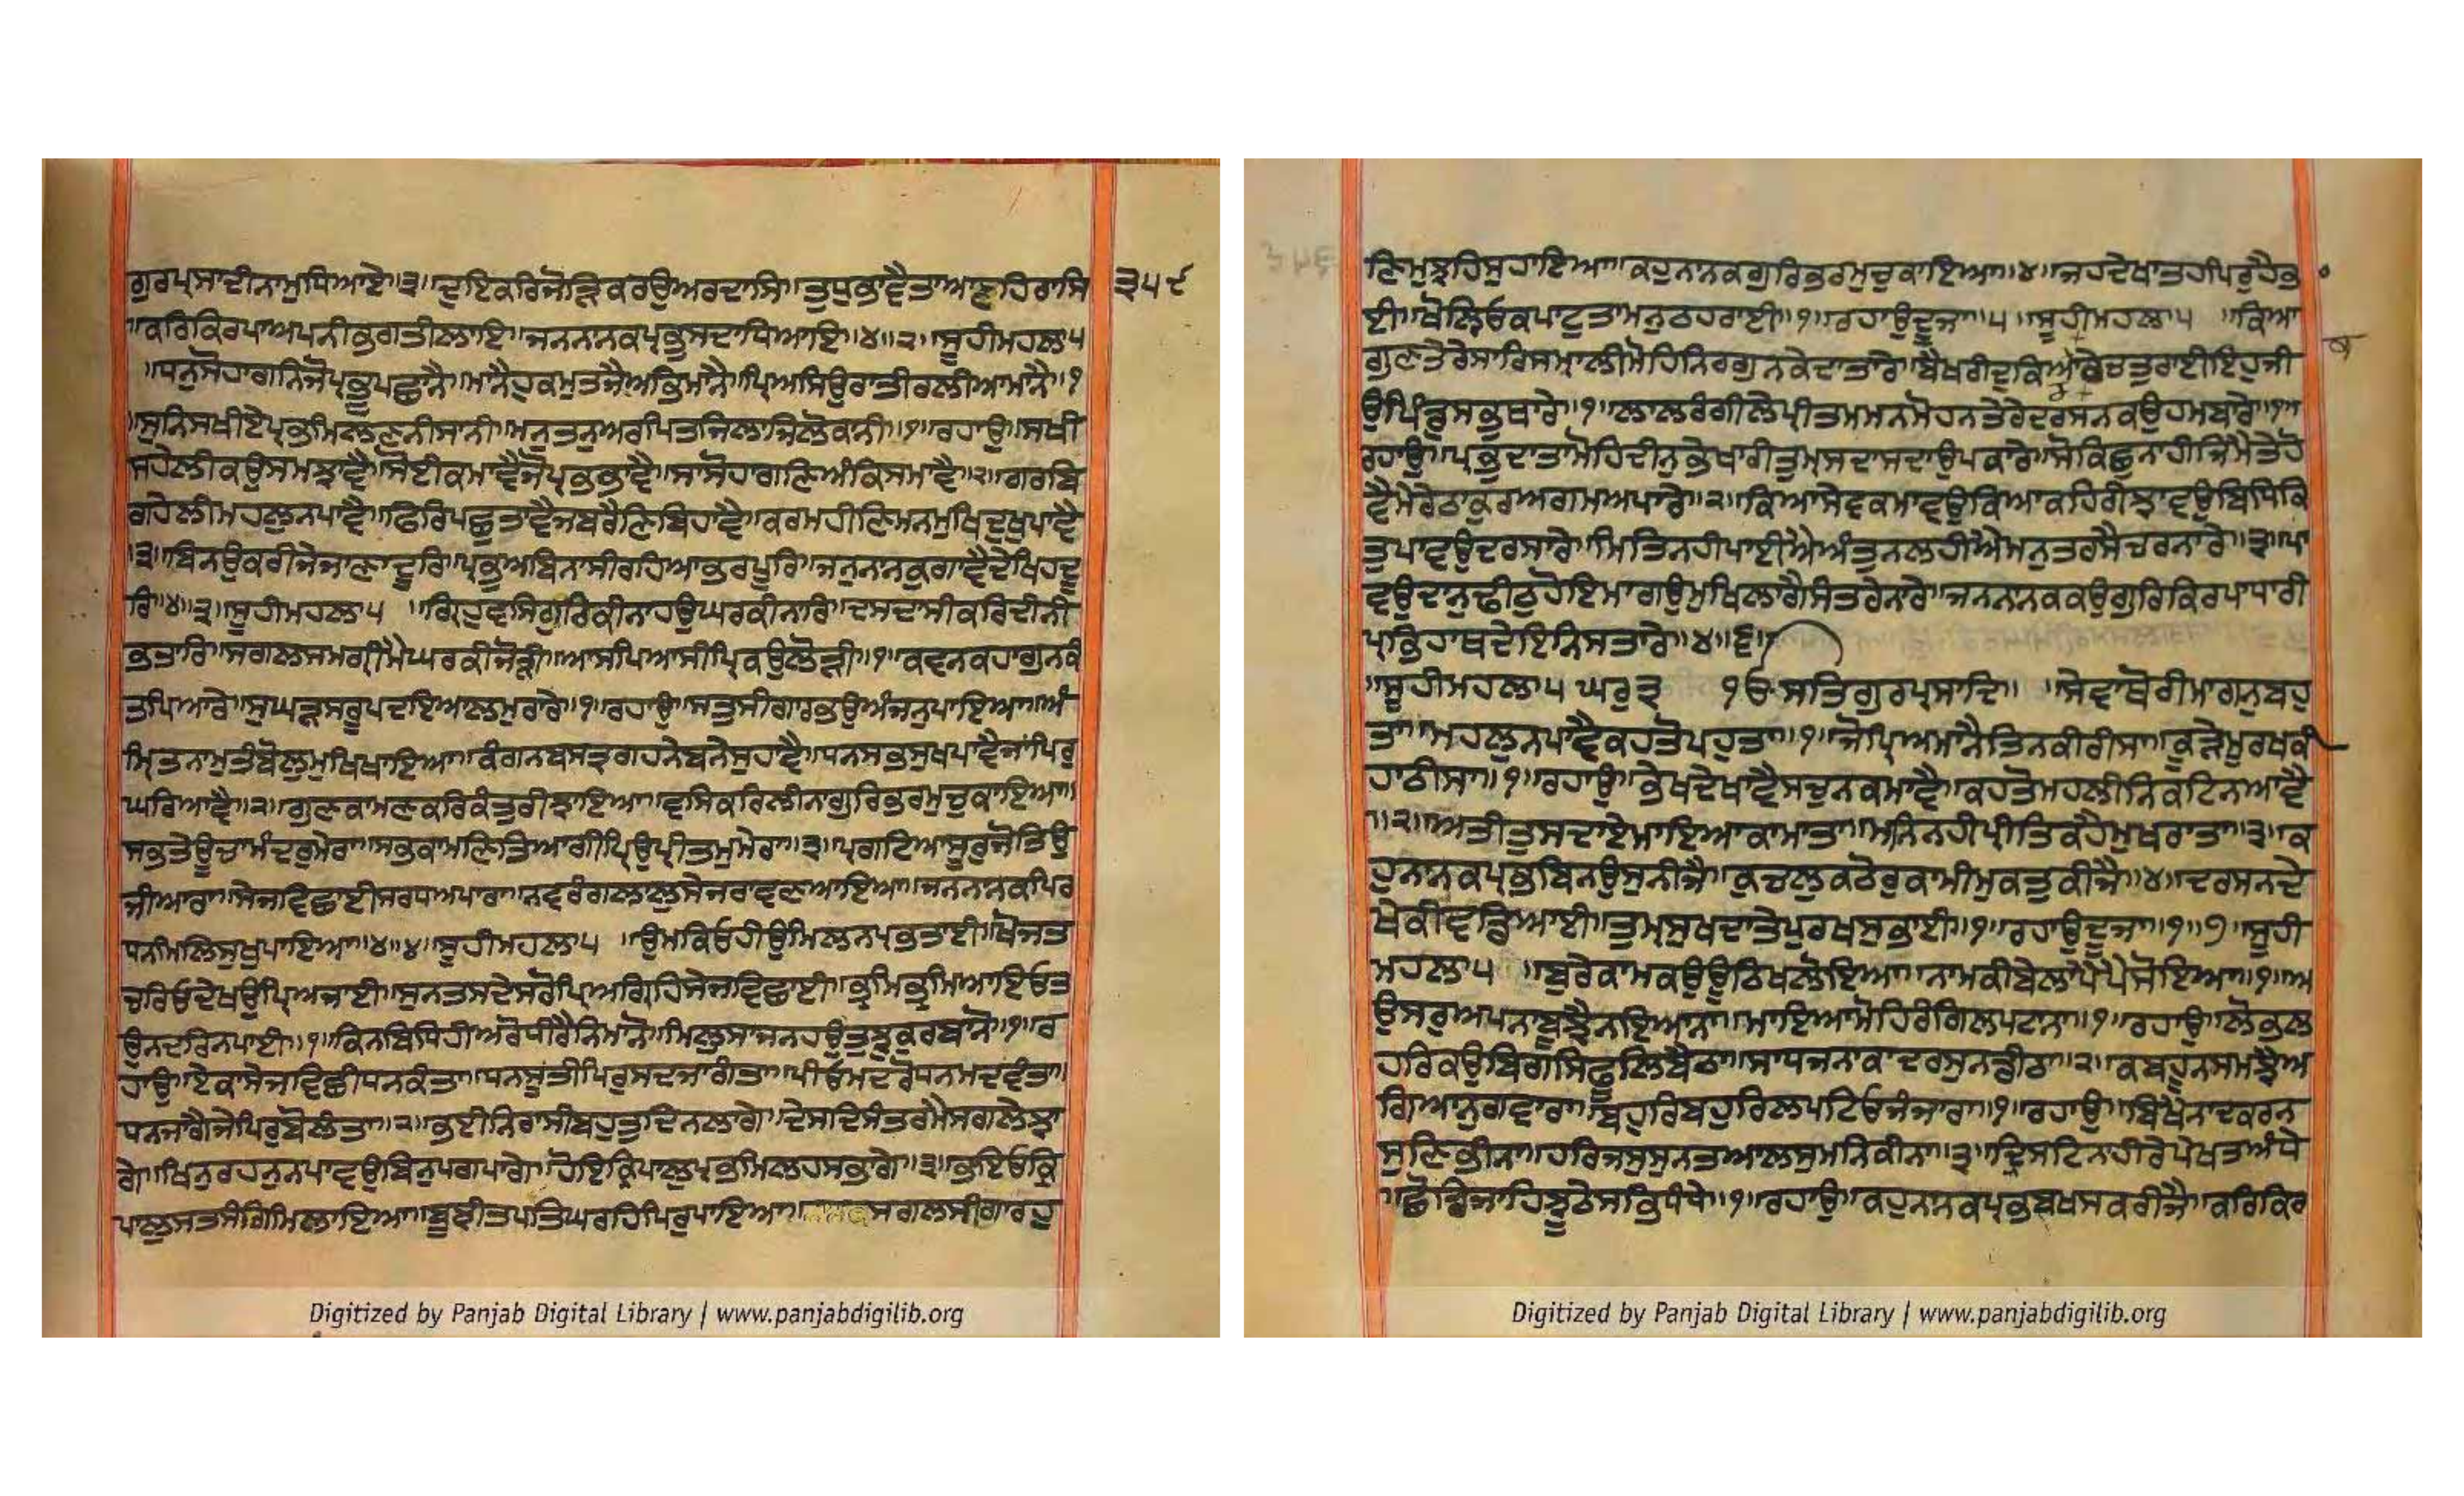 ਗੁਰਪ੍ਰਸਾਦੀਨਾਮੁਧਿਆਏ॥੩॥ਦੁਇਕਰਿਜੋੜਿਕਰਉਅਰਦਾਸਿ॥ਤੁਧੁਭਾਵੈਤਾਆਣਹਿਰਾਸਿ
੩੫੯
॥ਕਰਿਕਿਰਪਾਅਪਨੀਭਗਤੀਲਾਇ॥ਜਨਨਾਨਕਪ੍ਰਭੁਸਦਾਧਿਆਇ॥੪॥੨॥ਸੂਹੀਮਹਲਾ੫
॥ਧਨੁਸੋਹਾਗਨਿਜੋਪ੍ਰਭੂਪਛਾਨੈ॥ਮਾਨੈਹੁਕਮੁਤਜੈਅਭਿਮਾਨੈ॥ਪ੍ਰਿਅਸਿਉਰਾਤੀਰਲੀਆਮਾਨੈ॥੧
॥ਸੁਨਿਸਖੀਏਪ੍ਰਭਮਿਲਣਨੀਸਾਨੀ॥ਮਨੁਤਨੁਅਰਪਿਤਜਿਲਾਜਿਲੋਕਾਨੀ॥੧॥ਰਹਾਉ॥ਸਖੀ
ਸਹੇਲੀਕਉਸਮਝਾਵੈ॥ਸੋਈਕਮਾਵੈਜੋਪ੍ਰਭਭਾਵੈ॥ਸਾਸੋਹਾਗਣਿਅੰਕਿਸਮਾਵੈ॥੨॥ਗਰਬਿ
ਗਹੇਲੀਮਹਲੁਨਪਾਵੈ॥ਫਿਰਿਪਛੁਤਾਵੈਜਬਰੈਣਿਬਿਹਾਵੈ॥ਕਰਮਹੀਣਿਮਨਮੁਖਿਦੁਖੁਪਾਵੈ
॥੩॥ਬਿਨਉਕਰੀਜੇਜਾਣਾਦੂਰਿ॥ਪ੍ਰਭੁਅਬਿਨਾਸੀਰਹਿਆਭਰਪੂਰਿ॥ਜਨੁਨਾਨਕੁਗਾਵੈਦੇਖਿਹਦੂ
ਰਿ॥੪॥੩॥ਸੂਹੀਮਹਲਾ੫ ॥ਗ੍ਰਿਹੁਵਸਿਗੁਰਿਕੀਨਾਹਉਘਰਕੀਨਾਰਿ॥ਦਸਦਾਸੀਕਰਿਦੀਨੀ
ਭਤਾਰਿ॥ਸਗਲਸਮਗ੍ਰੀਮੈਘਰਕੀਜੋੜੀ॥ਆਸਪਿਆਸੀਪਿਰਕਉਲੋੜੀ॥੧॥ਕਵਨਕਹਾਗੁਨਕੰ
ਤਪਿਆਰੇ॥ਸੁਘੜਸਰੂਪਦਇਆਲਮੁਰਾਰੇ॥੧॥ਰਹਾਉ॥ਸਤੁਸੀਗਾਰਭਉਅੰਜਨੁਪਾਇਆ॥ਅੰ
ਮ੍ਰਿਤਨਾਮੁਤੰਬੋਲੁਮੁਖਿਖਾਇਆ॥ਕੰਗਨਬਸਤ੍ਰਗਹਨੇਬਨੇਸੁਹਾਵੈ॥ਧਨਸਭਸੁਖਪਾਵੈਜਾਂਪਿਰੁ
ਘਰਿਆਵੈ॥੨॥ਗੁਣਕਾਮਣਕਰਿਕੰਤੁਰੀਝਾਇਆ॥ਵਸਿਕਰਿਲੀਨਾਗੁਰਿਭਰਮੁਚੁਕਾਇਆ॥
ਸਭਤੇਊਚਾਮੰਦਰੁਮੇਰਾ॥ਸਭਕਾਮਣਿਤਿਆਗੀਪ੍ਰਿਉਪ੍ਰੀਤਮੁਮੇਰਾ॥੩॥ਪ੍ਰਗਟਿਆਸੂਰੁਜੋਤਿਉ
ਜੀਆਰਾ॥ਸੇਜਵਿਛਾਈਸਰਧਅਪਾਰਾ॥ਨਵਰੰਗਲਾਲੁਸੇਜਰਾਵਣਆਇਆ॥ਜਨਨਾਨਕਪਿਰ
ਧਨਮਿਲਿਸੁਖੁਪਾਇਆ॥੪॥੪॥ਸੂਹੀਮਹਲਾ੫ ॥ਉਮਕਿਓਹੀਉਮਿਲਨਪ੍ਰਭਤਾਈ॥ਖੋਜਤ
ਚਰਿਓਦੇਖਉਪ੍ਰਿਅਜਾਈ॥ਸੁਨਤਸਦੇਸਰੋਪ੍ਰਿਅਗ੍ਰਿਹਿਸੇਜਵਿਛਾਈ॥ਭ੍ਰਮਿਭ੍ਰਮਿਆਇਓਤ
ਉਨਦਰਿਨਪਾਈ॥੧॥ਕਿਨਬਿਧਿਹੀਅਰੋਧੀਰੈਨਿਮਾਨੋ॥ਮਿਲੁਸਾਜਨਹਉਤੁਝੁਕੁਰਬਾਨੋ॥੧॥ਰ
ਹਾਉ॥ਏਕਾਸੇਜਵਿਛੀਧਨਕੰਤਾ॥ਧਨਸੂਤੀਪਿਰੁਸਦਜਾਗੰਤਾ॥ਪੀਓਮਦਰੋਧਨਮਦਵੰਤਾ॥
ਧਨਜਾਗੈਜੇਪਿਰੁਬੋਲੰਤਾ॥੨॥ਭਈਨਿਰਾਸੀਬਹੁਤੁਦਿਨਲਾਗੇ॥ਦੇਸਦਿਸੰਤਰਮੈਸਗਲੇਝਾ
ਗੇ॥ਖਿਨੁਰਹਨੁਨਪਾਵਉਬਿਨੁਪਗਪਾਗੇ॥ਹੋਇਕ੍ਰਿਪਾਲੁਪ੍ਰਭਮਿਲਹਸਭਾਗੇ॥੩॥ਭਇਓਕ੍ਰਿ
ਪਾਲੁਸਤਸੰਗਿਮਿਲਾਇਆ॥ਬੂਝੀਤਪਤਿਘਰਹਿਪਿਰੁਪਾਇਆ॥ਸਗਲਸੀਗਾਰਹੁ
Digitized by Panjab Digital Library | www.panjabdigilib.org
ਣਿਮੁਝਹਿਸੁਹਾਇਆ॥ਕਹੁਨਾਨਕਗੁਰਿਭਰਮੁਚੁਕਾਇਆ॥੪॥ਜਹਦੇਖਾਤਹਪਿਰੁਹੈਭਾ
ਈ॥ਖੋਲਿ੍ਓਕਪਾਟੁਤਾਮਨੁਠਹਰਾਈ॥੧॥ਰਹਾਉਦੂਜਾ॥੫॥ਸੂਹੀਮਹਲਾ੫ ॥ਕਿਆ
ਗੁਣਤੇਰੇਸਾਰਿਸਮਾਲੀਮੋਹਿਨਿਰਗੁਨਕੇਦਾਤਾਰੇ॥ਬੈਖਰੀਦੁਕਿਆਕਰੇਚਤੁਰਾਈਇਹੁਜੀ
ਉਪਿੰਡੁਸਭੁਥਾਰੇ॥੧॥ਲਾਲਰੰਗੀਲੇਪ੍ਰੀਤਮਮਨਮੋਹਨਤੇਰੇਦਰਸਨਕਉਹਮਬਾਰੇ॥੧॥
ਰਹਾਉ॥ਪ੍ਰਭੁਦਾਤਾਮੋਹਿਦੀਨੁਭੇਖਾਰੀਤੁਮ੍ਸਦਾਸਦਾਉਪਕਾਰੇ॥ਸੋਕਿਛੁਨਾਹੀਜਿਮੈਤੇਹੋ
ਵੈਮੇਰੇਠਾਕੁਰਅਗਮਅਪਾਰੇ॥੨॥ਕਿਆਸੇਵਕਮਾਵਉਕਿਆਕਹਿਰੀਝਾਵਉਬਿਧਿਕਿ
ਤੁਪਾਵਉਦਰਸਾਰੇ॥ਮਿਤਿਨਹੀਪਾਈਐਅੰਤੁਨਲਹੀਐਮਨੁਤਰਸੈਚਰਨਾਰੇ॥੩॥ਪਾ
ਵਉਦਾਨੁਢੀਠੁਹੋਇਮਾਗਉਮੁਖਿਲਾਗੈਸੰਤਰੇਨਾਰੇ॥ਜਨਨਾਨਕਕਉਗੁਰਿਕਿਰਪਾਧਾਰੀ
ਪ੍ਰਭਿਹਾਥਦੇਇਨਿਸਤਾਰੇ॥੪॥੬॥
॥ਸੂਹੀਮਹਲਾ੫ ਘਰੁ੩ ੴਸਤਿਗੁਰਪ੍ਰਸਾਦਿ॥ ॥ਸੇਵਾਥੋਰੀਮਾਗਨੁਬਹੁ
ਤਾ॥ਮਹਲੁਨਪਾਵੈਕਹਤੋਪਹੁਤਾ॥੧॥ਜੋਪ੍ਰਿਅਮਾਨੈਤਿਨਕੀਰੀਸਾ॥ਕੂੜੇਮੂਰਖਕੀ
ਹਾਠੀਸਾ॥੧॥ਰਹਾਉ॥ਭੇਖਦੇਖਾਵੈਸਚੁਨਕਮਾਵੈ॥ਕਹਤੋਮਹਲੀਨਿਕਟਿਨਆਵੈ
॥੨॥ਅਤੀਤੁਸਦਾਏਮਾਇਆਕਾਮਾਤਾ॥ਮਨਿਨਹੀਪ੍ਰੀਤਿਕਹੈਮੁਖਰਾਤਾ॥੩॥ਕ
ਹੁਨਾਨਕਪ੍ਰਭਬਿਨਉਸੁਨੀਜੈ॥ਕੁਚਲੁਕਠੋਰੁਕਾਮੀਮੁਕਤੁਕੀਜੈ॥੪॥ਦਰਸਨਦੇ
ਖੇਕੀਵਡਿਆਈ॥ਤੁਮ੍ਸੁਖਦਾਤੇਪੁਰਖਸੁਭਾਈ॥੧॥ਰਹਾਉਦੂਜਾ॥੧॥੭॥ਸੂਹੀ
ਮਹਲਾ੫ ॥ਬੁਰੇਕਾਮਕਉਊਠਿਖਲੋਇਆ॥ਨਾਮਕੀਬੇਲਾਪੈਪੈਸੋਇਆ॥੧॥ਅ
ਉਸਰੁਅਪਨਾਬੂਝੈਨਇਆਨਾ॥ਮਾਇਆਮੋਹਿਰੰਗਿਲਪਟਾਨਾ॥੧॥ਰਹਾਉ॥ਲੋਭਲ
ਹਰਿਕਉਬਿਗਸਿਫੂਲਿਬੈਠਾ॥ਸਾਧਜਨਾਕਾਦਰਸੁਨਡੀਠਾ॥੨॥ਕਬਹੂਨਸਮਝੈਅ
ਗਿਆਨੁਗਵਾਰਾ॥ਬਹੁਰਿਬਹੁਰਿਲਪਟਿਓਜੰਜਾਰਾ॥੧॥ਰਹਾਉ॥ਬਿਖੈਨਾਦਕਰਨ
ਸੁਣਿਭੀਨਾ॥ਹਰਿਜਸੁਸੁਨਤਆਲਸੁਮਨਿਕੀਨਾ॥੩॥ਦ੍ਰਿਸਟਿਨਾਹੀਰੇਪੇਖਤਅੰਧੇ
॥ਛੋਡਿਜਾਹਿਝੂਠੇਸਭਿਧੰਧੇ॥੧॥ਰਹਾਉ॥ਕਹੁਨਾਨਕਪ੍ਰਭਬਖਸਕਰੀਜੈ॥ਕਰਿਕਿਰ
Digitized by Panjab Digital Library | www.panjabdigilib.org